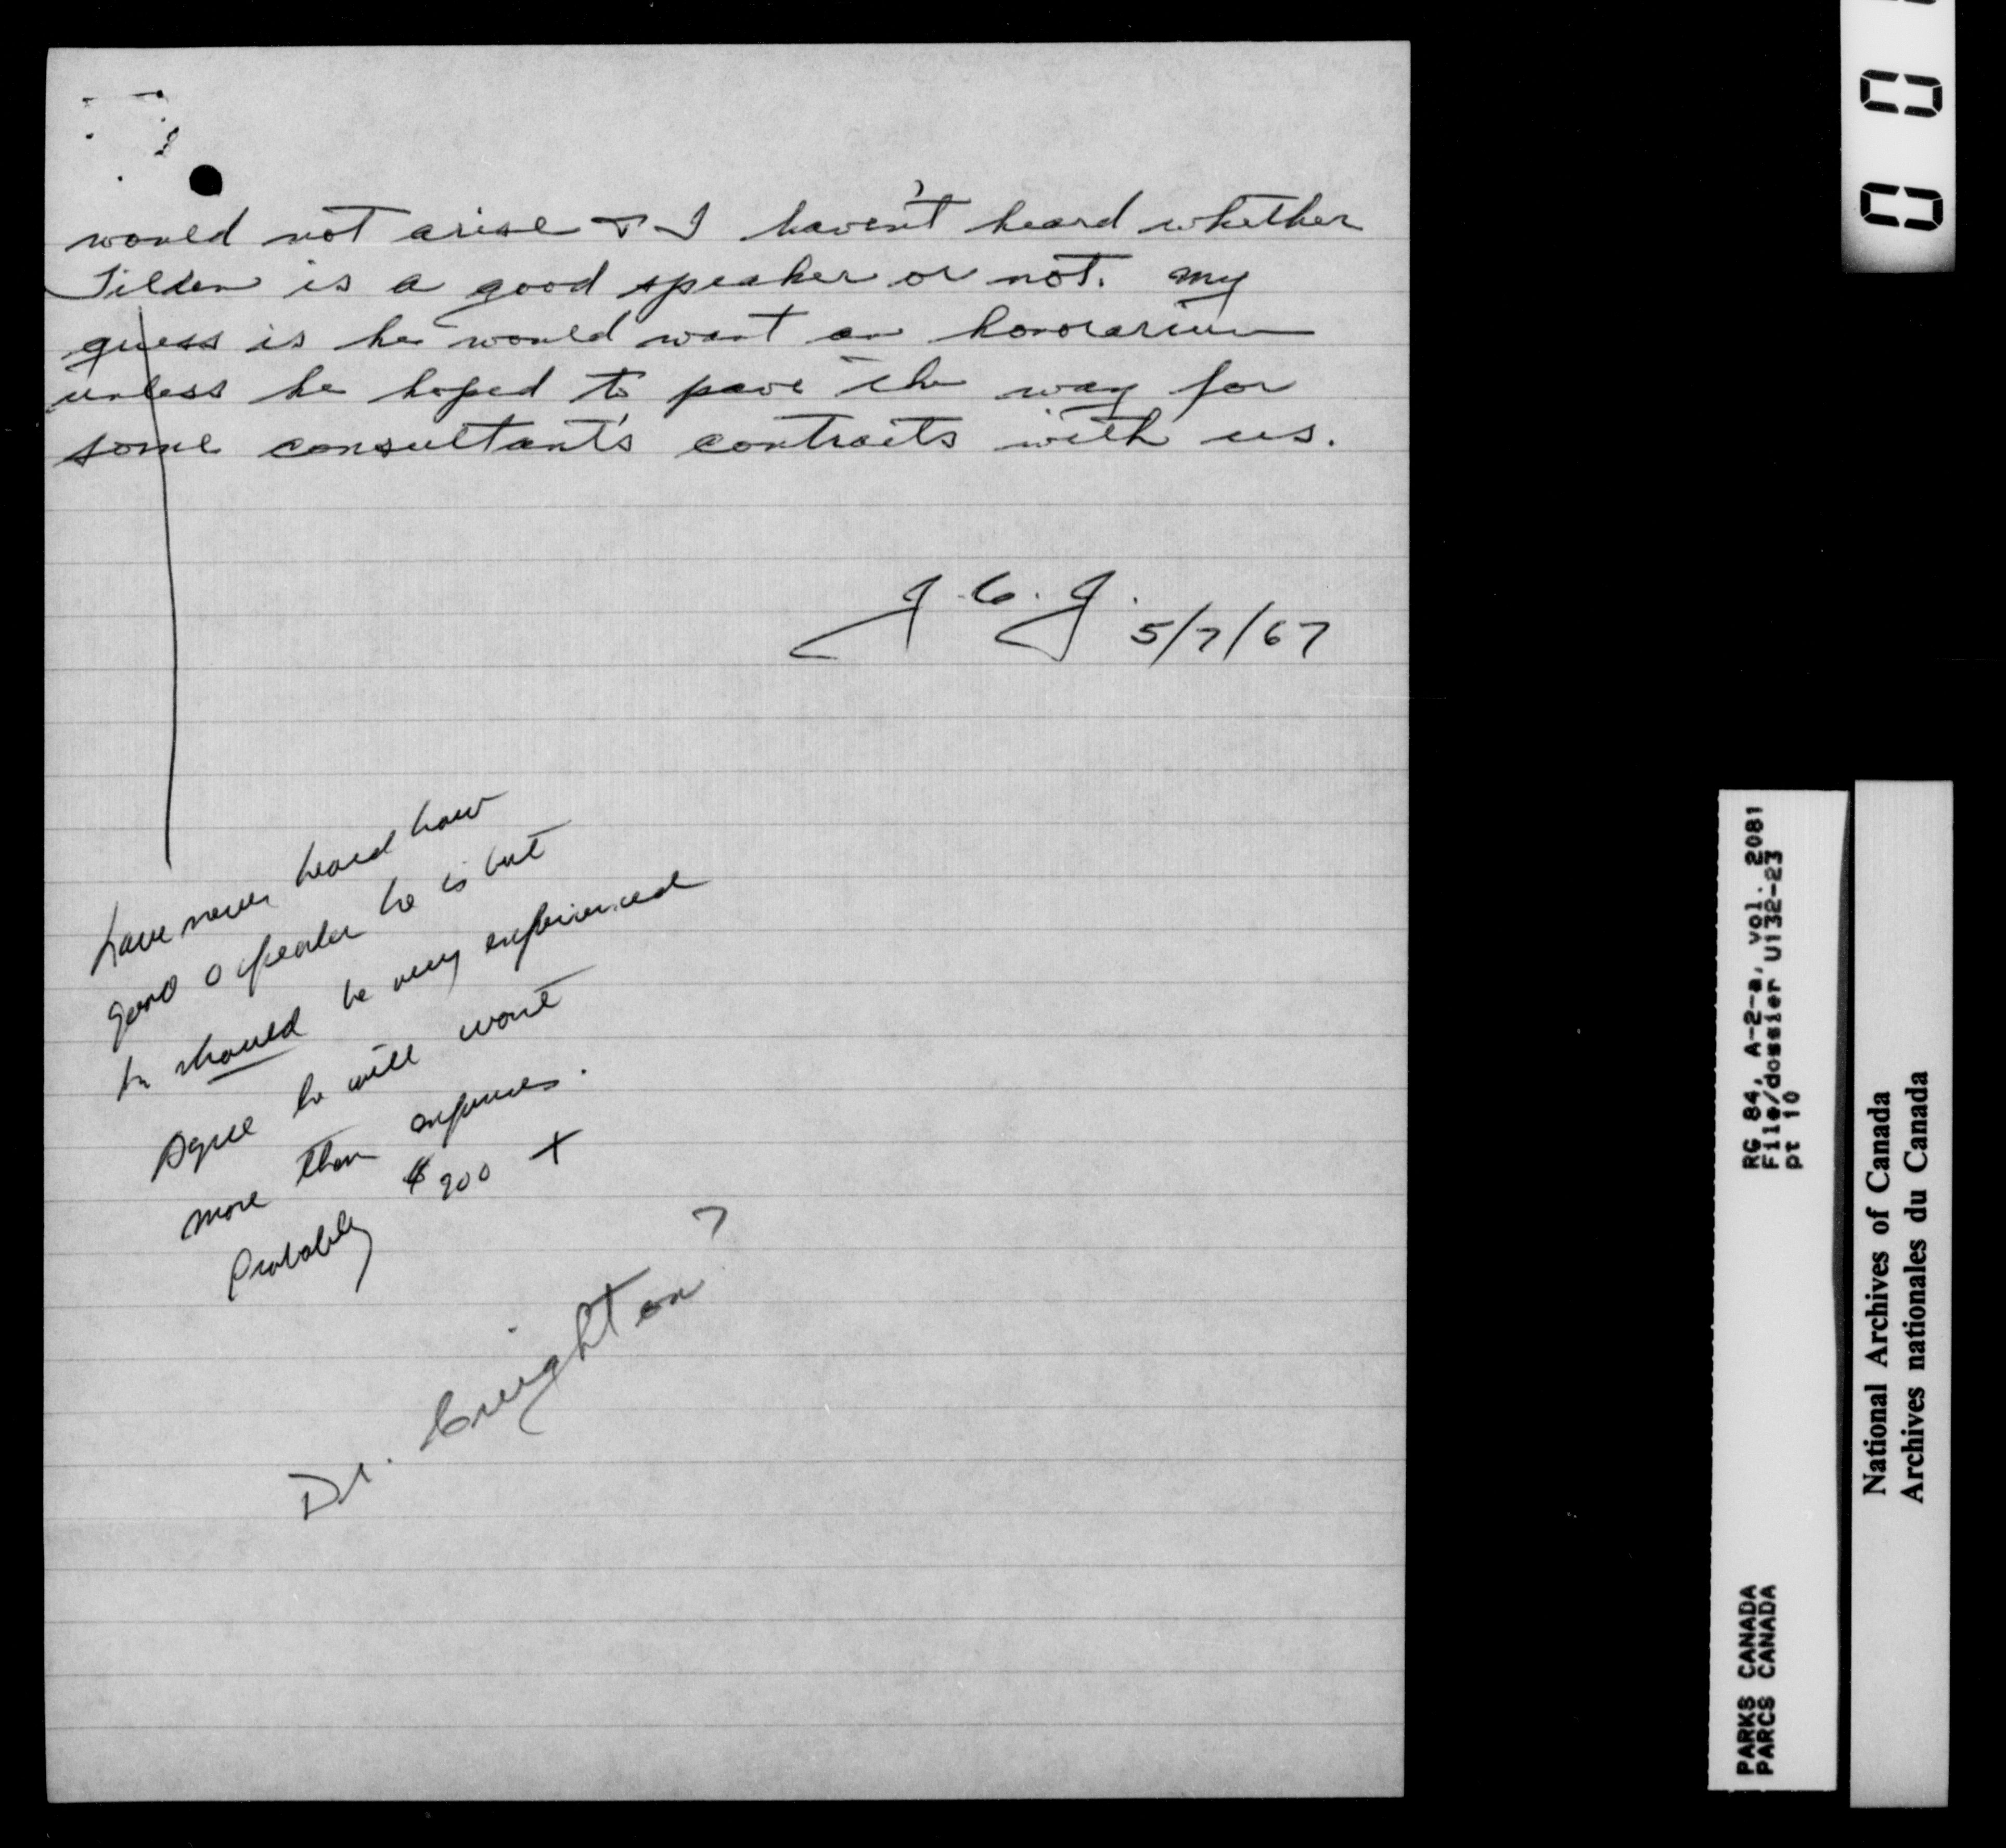 would not arise & I haven't heard whether
Tilden is a good speaker or not. My
guess is he would want an honorarium
unless he hoped to pave the way for
some consultant's contracts with us.
J.C.J. 5/7/67
have never heard how
good a speaker he is but
he should be very experienced
Agree he will want
more than expenses.
Probably $200 +
Dr. Creighton?
RG 84, A-2-a, vol. 2081
File/dossier U132-23
pt 10
PARKS CANADA
PARCS CANADA
National Archives of Canada
Archives nationales du Canada